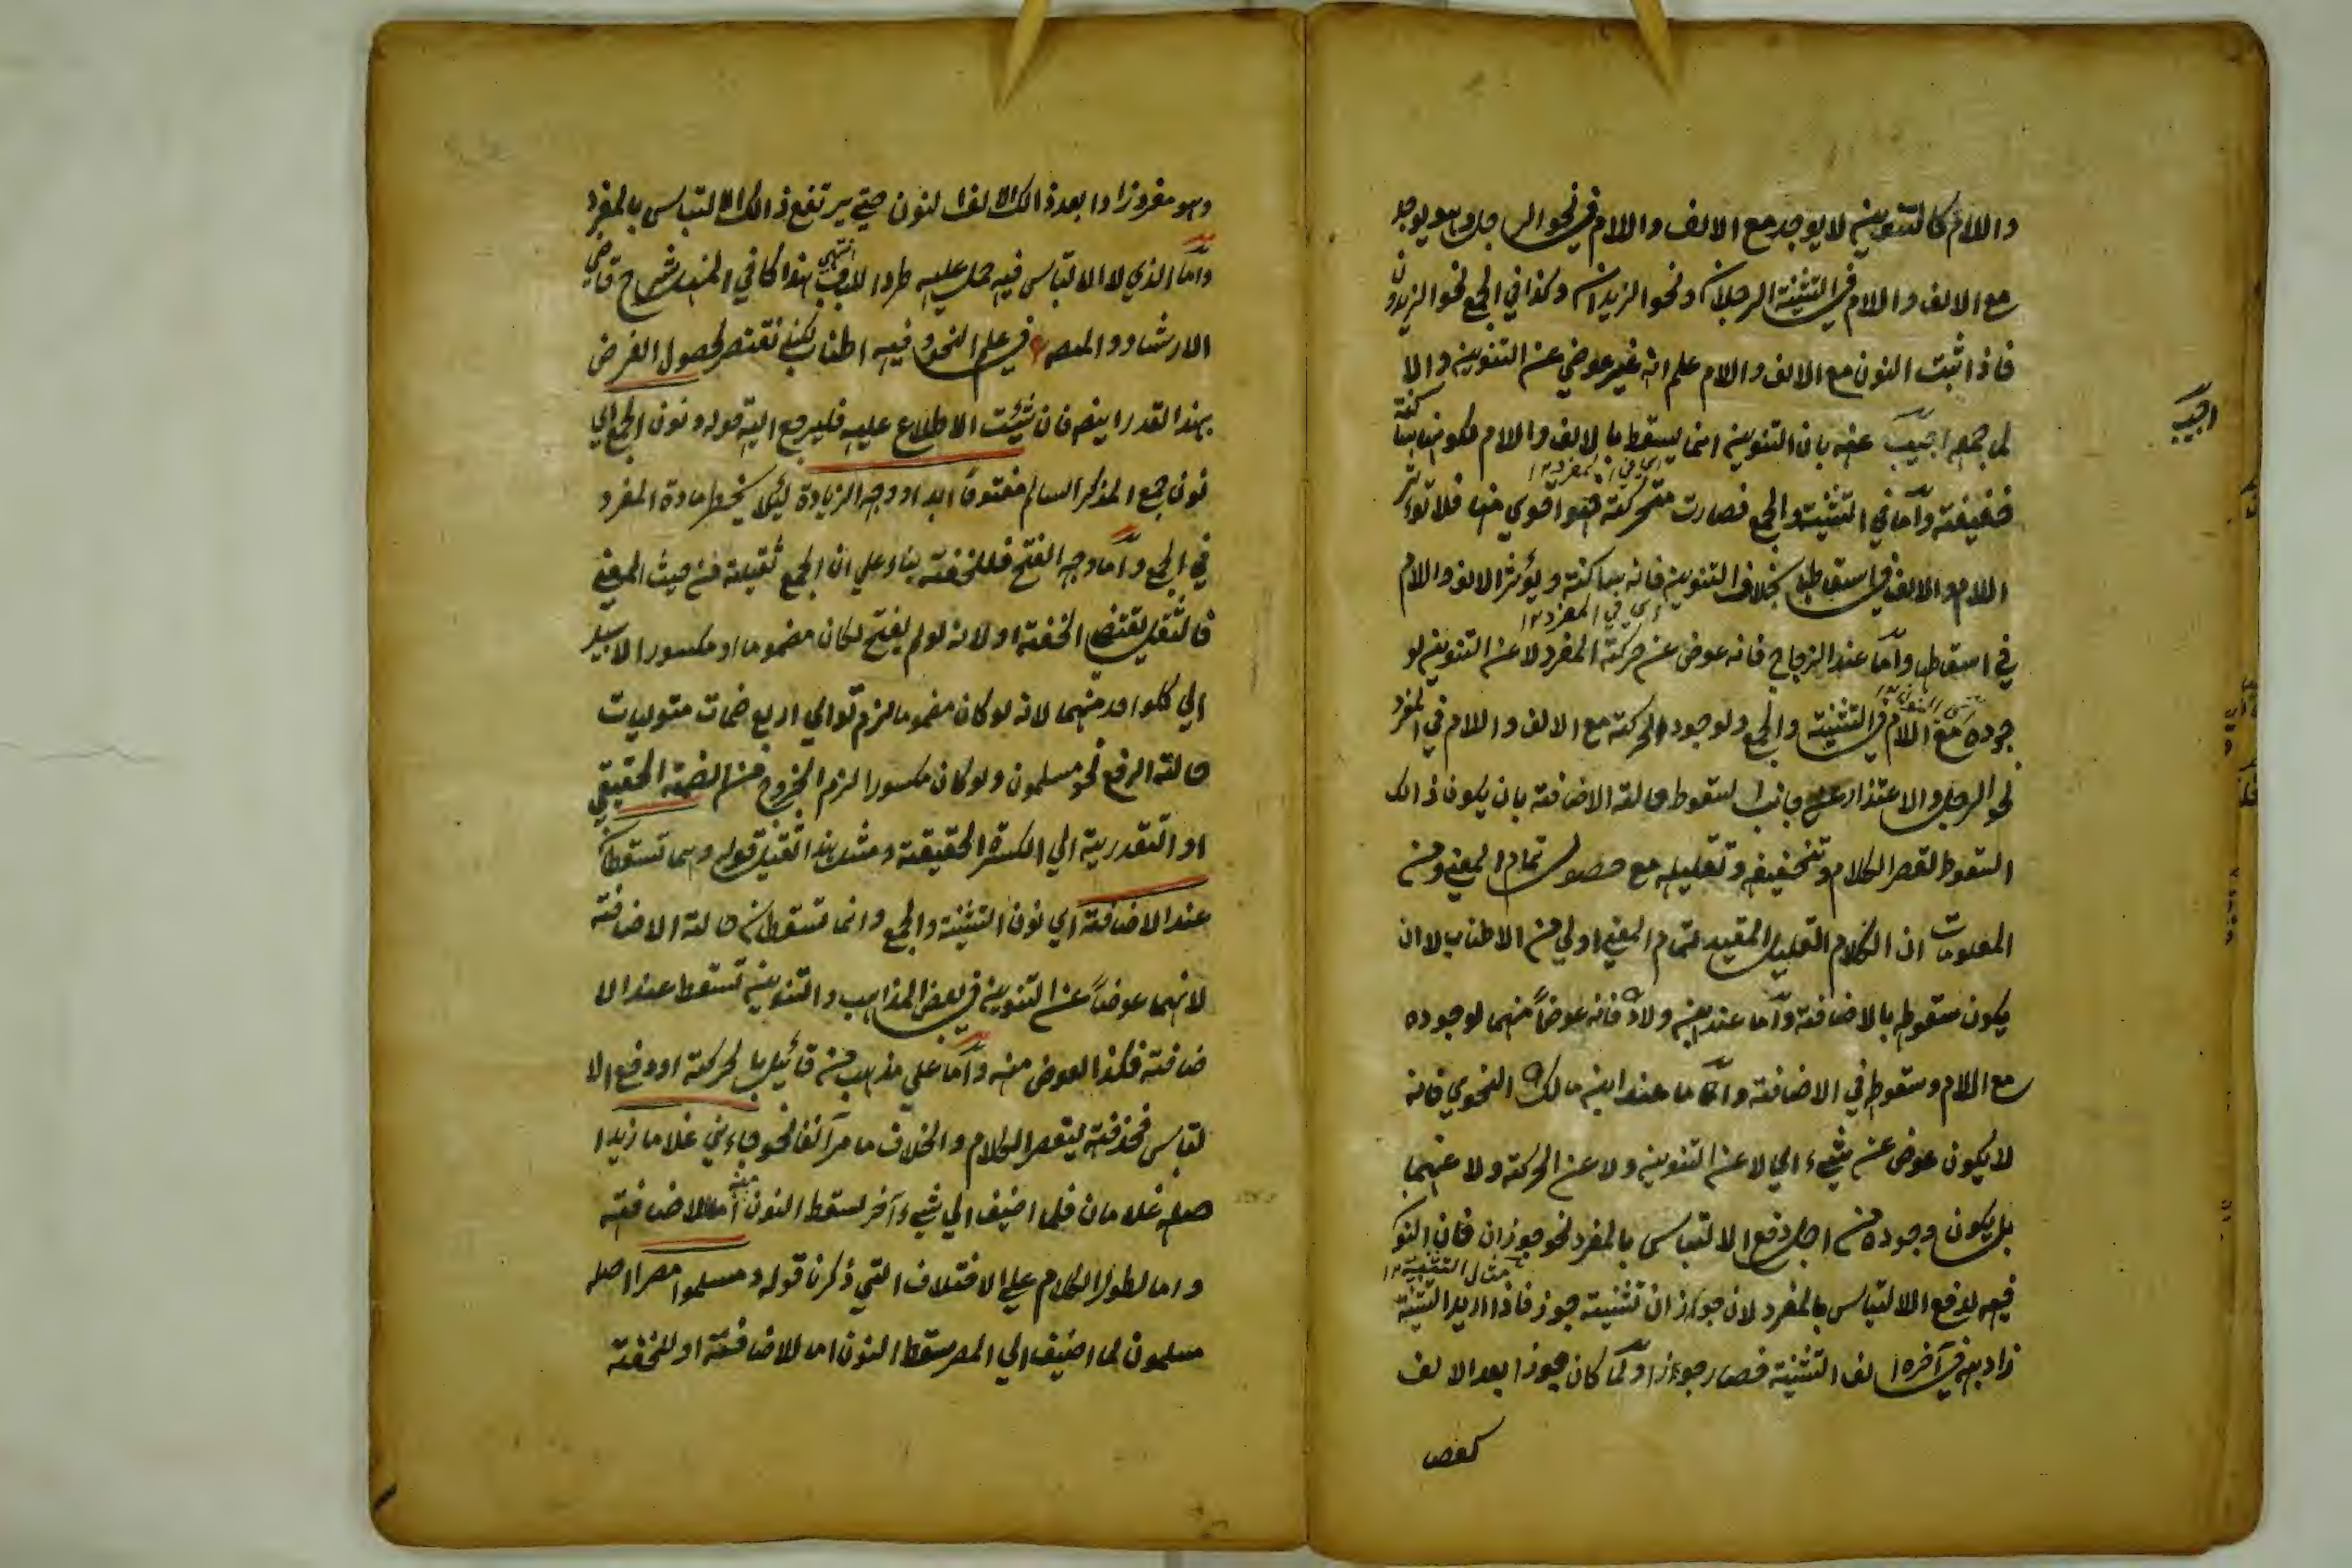 واللام كالتنوين لا يوجد مع الالف واللام في نحو الرجل وهو يوجد
مع الالف واللام في التثنية الرجلان ونحو الزيدان وكذا في الجمع نحو الزيدون
فاذا ثبت النون مع الالف واللام علم انه غير عوض عن التنوين والا
لما جمعه اجيب عنه بان التنوين انما يسقط بالالف واللام لكونها ساكنة
اجيب
ضعيفة وأما في التثنية والجمع فصارت متحركة فهو اقوي منها فلا تؤثر
اللام والالف في اسقاطها بخلاف التنوين فانه ساكنة ويؤثر الالف واللام
اي في المفرد ١٢
في اسقاطها وأما عند الزجاج فانه عوض عن حركة المفرد لا عن التنوين لو
جوده مع اللام في التثنية والجمع ولوجود الحركة مع الالف واللام في المفرد
نحو الرجل والاعتذار عن جانب السقوط حالة الاضافة بان يكون ذالك
السقوط لقصر الكلام وتخفيفه وتقليله مع حصول تمام المعني ومن
المعلومات ان الكلام القليل المقيد لتمام المعني اولي من الاطناب لا ان
يكون سقوطه بالاضافة وأما عند ابن ولاد فانه عوضا منهما لوجوده
مع اللام وسقوطه في الاضافة وأما ما عند ابن مالك النحوي فانه
لا يكون عوض عن شيء اي لا عن التنوين ولا عن الحركة ولا عنهما
بل يكون وجوده من اجل دفع الالتباس بالمفرد نحو جوزان فان النون
مثال التثنية ١٢
فيه لدفع الالتباس بالمفرد لان جوزان تثنية جوز فاذا اريد التثنية
زاد به في آخره الف التثنية فصار جوزا ولما كان جوزا بعد الالف
وهو مفرد زادا بعد ذالك الالف النون حتي يرتفع ذالك الالتباس بالمفرد
وأما الذي لا الالتباس فيه حمل عليه طردا للباب انتهي هذا كما في المنهل شرح قاضي
الارشاد والمص في علم النحو وفيه اطناب لكني نقتصر لحصول الغرض
بهذا القدر ايضا فان شئت الاطلاع عليه فليرجع اليه قوله ونون الجمع اي
نون جمع المذكر السالم مفتوحا ابدا ووجه الزيادة لئلا يخط مادة المفرد
في الجمع وأما وجه الفتح فللخفة بناء علي ان الجمع ثقيلة من حيث المعني
فالثقيل يقتضي الخفة او لانه لو لم يفتح لكان مضموما او مكسورا لا سبيل
الي كلواحد منهما لانه لو كان مضموما لزم توالي اربع ضمات متوليات
حالة الرفع نحو مسلمون ولو كان مكسورا لزم الخروج من الضمة الحقيقي
او التقدرية الي الكسرة الحقيقة ومثل هذا ثقيل قوله وهما تسقطان
عند الاضافة اي نون التثنية والجمع وانما تسقطان حالة الاضافة
لانهما عوضا عن التنوين في بعض المذاهب والتنوين تسقط عند الا
ضافة فكذا العوض منه وأما علي مذهب من قائل بالحركة او دفع الا
لتباس فحذفته ليقصر الكلام والخلاف ما مر آنفا نحو جاءني غلاما زيدا
اصله غلامان فلما اضيف الي شيء آخر لسقط النون منه أما للاضافة
واما لطول الكلام علي الاختلاف التي ذكرنا قوله ومسلموا مصر اصله
مسلمون لما اضيف الي المصر سقط النون اما للاضافة او للخفة